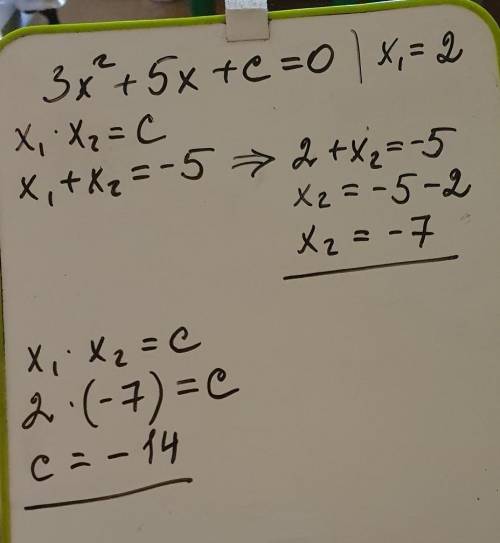 3x² + 5x + c = 0 | x₁ = 2
x₁ · x₂ = c
x₁ + x₂ = -5 ⇒ 2 + x₂ = -5
x₂ = -5 - 2
x₂ = -7
x₁ · x₂ = c
2 · (-7) = c
c = -14